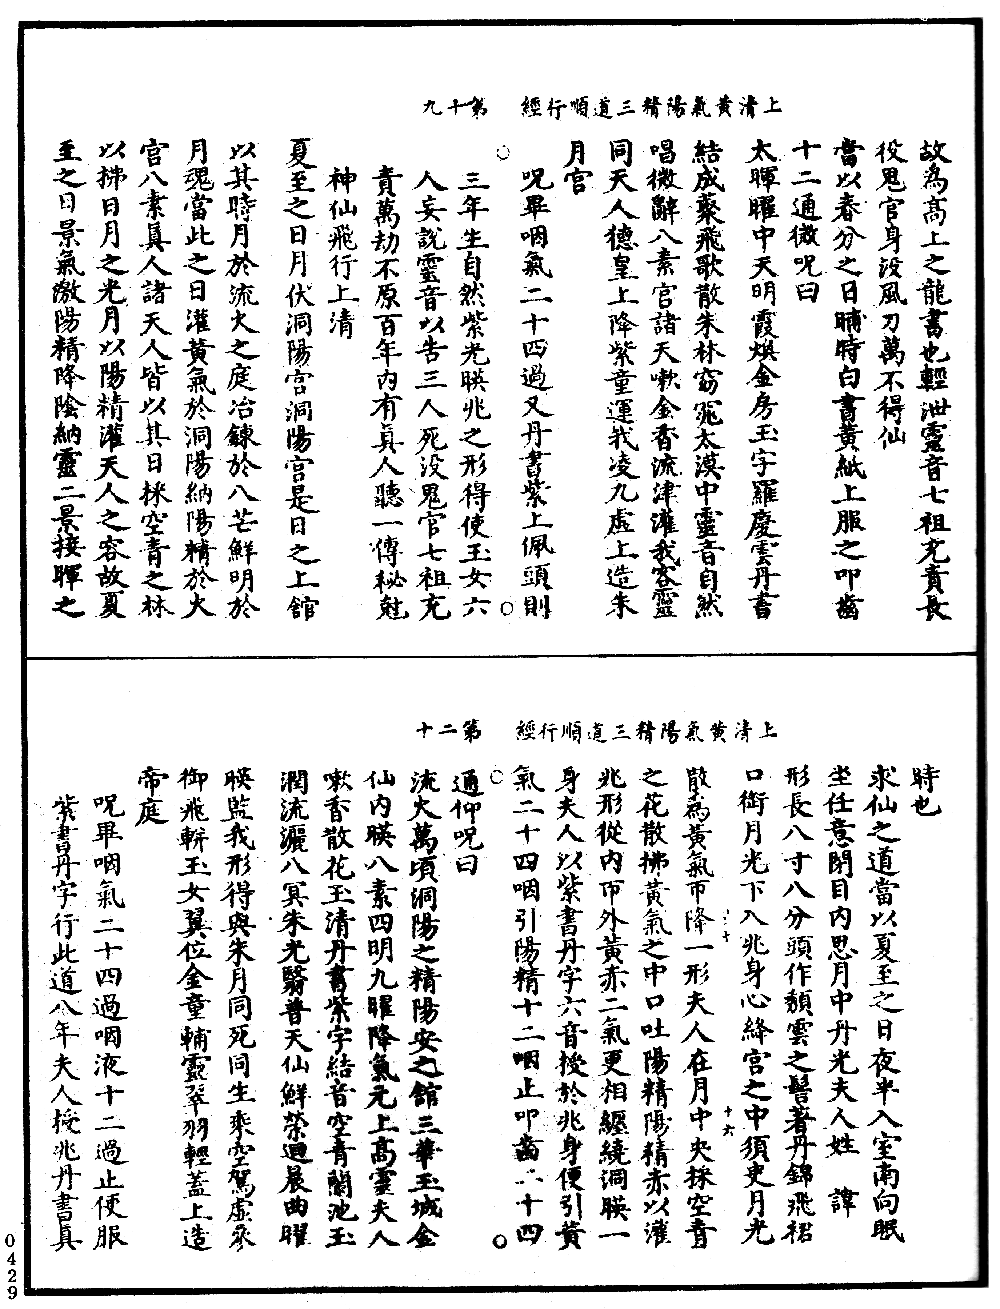 上清黃氣陽精三道順行經　第十九
故為高上之龍書也輕泄靈音七祖充責長
役鬼官身没風刀萬不得仙
當以春分之日晡時白書黃紙上服之叩齒
十二通微呪曰
太暉曜中天明霞煥金房玉字羅慶雲丹書
結成蘂飛歌散朱林窈窕太漠中靈音自然
唱微辭八素宮諸天嗽金香流津灌我容靈
同天人德皇上降紫童運我凌九虛上造朱
月宮
呪畢咽氣二十四過又丹書紫上佩頭則
三年生自然紫光暎兆之形得使玉女六
人妄說靈音以告三人死没鬼官七祖充
責萬劫不原百年内有真人聽一傳秘尅
神仙飛行上清
夏至之日月伏洞陽宮洞陽宮是日之上館
以其時月於流火之庭冶鍊於八芒鮮明於
月魂當此之日灌黃氣於洞陽納陽精於大
宮八素真人諸天人皆以其日採空青之林
以拂日月之光月以陽精灌天人之容故夏
至之日景氣激陽精降陰納靈二景接暉之
上清黃氣陽精三道順行經　第二十
時也
求仙之道當以夏至之日夜半入室南向眠
坐任意閉目内思月中丹光夫人姓　諱
形長八寸八分頭作頹雲之髻著丹錦飛裙
口銜月光下入兆身心絳宮之中須臾月光
散為黃氣帀降一形夫人在月中央採空青
之花散拂黃氣之中口吐陽精陽精赤以灌
兆形從内帀外黃赤二氣更相纏繞洞暎一
身夫人以紫書丹字六音授於兆身便引黃
氣二十四咽引陽精十二咽止叩齒二十四
通仰呪曰
流火萬頃洞陽之精陽安之館三華玉城金
仙内暎八素四明九曜降氣元上高靈夫人
嗽香散花玉清丹書紫字結音空青蘭池玉
潤流灑八冥朱光翳普天仙鮮榮迴晨曲曜
暎監我形得與朱月同死同生乘空駕虛參
御飛軿玉女翼位金童輔靈翠羽輕蓋上造
帝庭
呪畢咽氣二十四過咽液十二過止便服
紫書丹字行此道八年夫人授兆丹書真
0429